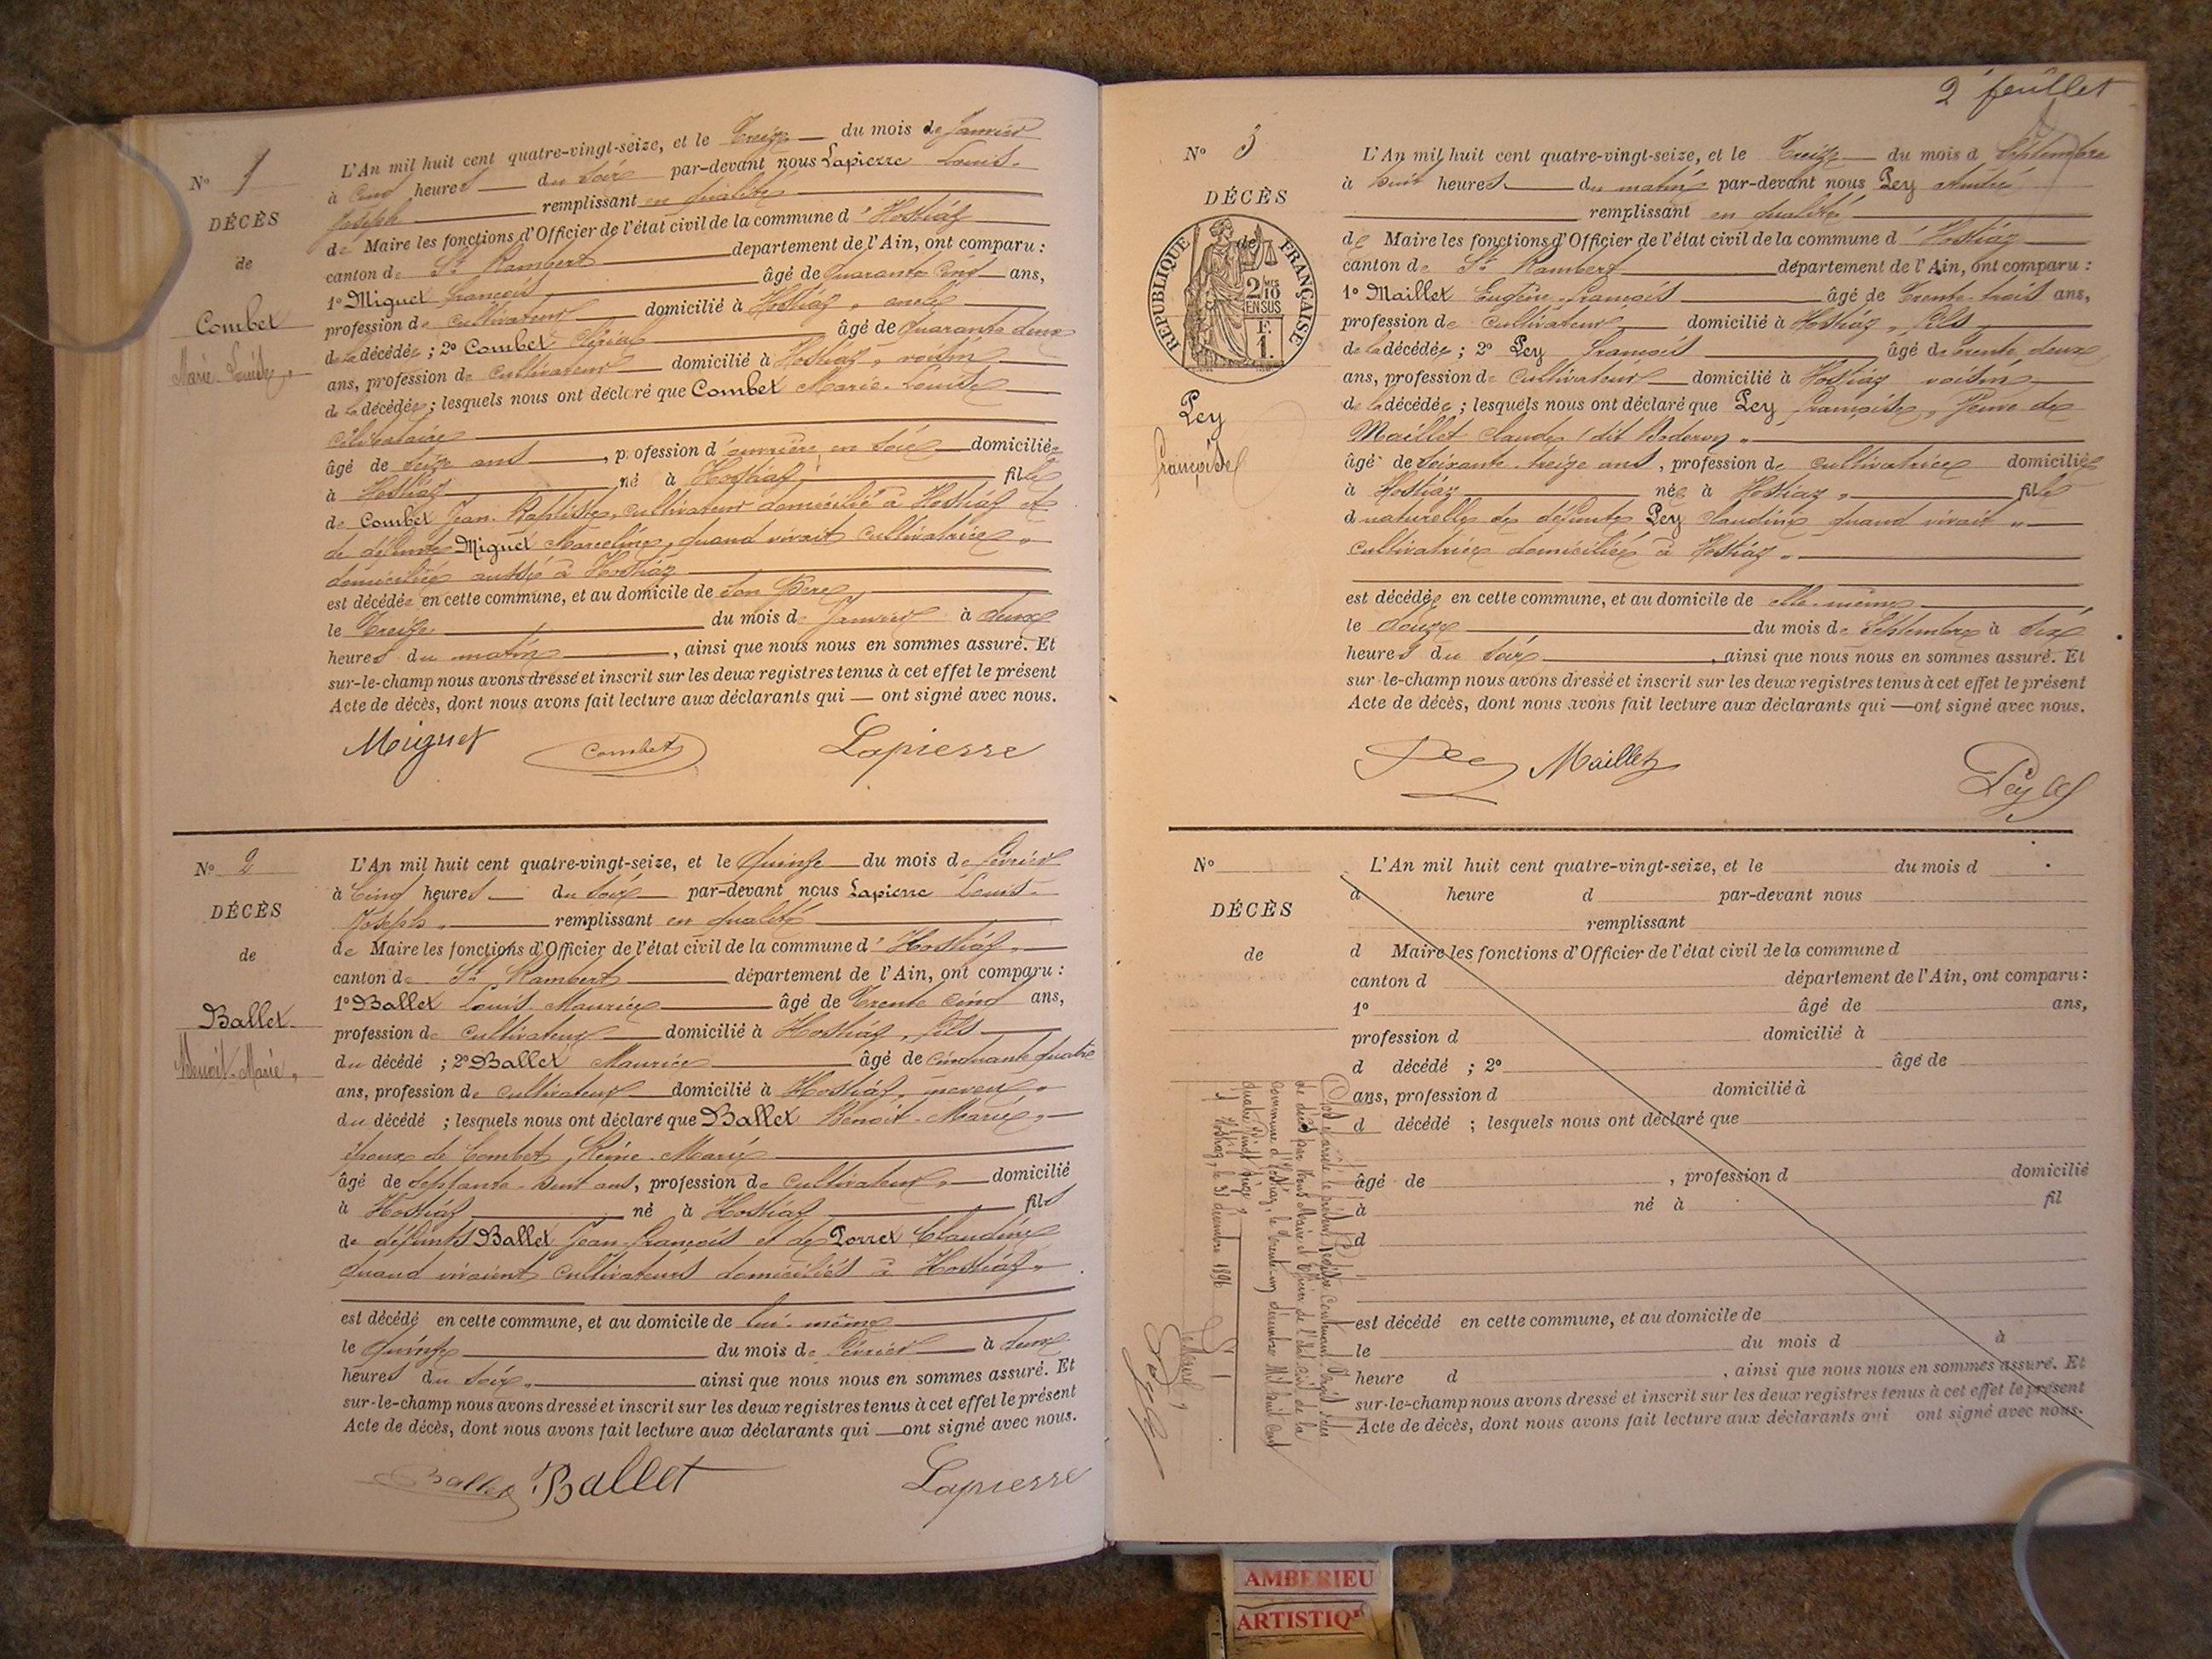 N° 1
DÉCÈS
de
Combet
Marie-Louise
L'An mil huit cent quatre-vingt-seize, et le Treize du mois de Janvier
à Cinq heures du Soir par-devant nous Lapierre Louis-
Joseph remplissant en qualité
de Maire les fonctions d'Officier de l'état civil de la commune d'Hostiaz
canton de St Rambert département de l'Ain, ont comparu :
1° Miguet François âgé de quarante cinq ans,
profession de cultivateur domicilié à Hostiaz, oncle
de la décédée ; 2° Combet âgé de quarante deux
ans, profession de cultivateur domicilié à Hostiaz, voisin
de la décédée ; lesquels nous ont déclaré que Combet Marie-Louise
célibataire
âgé de Seize ans, profession d'ouvrière en soie domiciliée
à Hostiaz né à Hostiaz fille
de Combet Jean-Baptiste, cultivateur domicilié à Hostiaz et
de défunte Miguet Marceline, quand vivait cultivatrice
domiciliée aussi à Hostiaz
est décédée en cette commune, et au domicile de son Père
le Treize du mois de Janvier à deux
heures du matin, ainsi que nous nous en sommes assuré. Et
sur-le-champ nous avons dressé et inscrit sur les deux registres tenus à cet effet le présent
Acte de décès, dont nous avons fait lecture aux déclarants qui — ont signé avec nous.
Miguet Combet Lapierre
N° 2
DÉCÈS
de
Ballet
Benoit-Marie
L'An mil huit cent quatre-vingt-seize, et le quinze du mois de Février
à Cinq heures du Soir par-devant nous Lapierre Louis-
Joseph remplissant en qualité
de Maire les fonctions d'Officier de l'état civil de la commune d'Hostiaz
canton de St Rambert département de l'Ain, ont comparu :
1° Ballet Louis Maurice âgé de Trente cinq ans,
profession de cultivateur domicilié à Hostiaz, fils
du décédé ; 2° Ballet Maurice âgé de cinquante quatre
ans, profession de cultivateur domicilié à Hostiaz, neveu
du décédé ; lesquels nous ont déclaré que Ballet Benoit-Marie,
époux de Combet Reine-Marie
âgé de Septante-huit ans, profession de cultivateur, domicilié
à Hostiaz né à Hostiaz fils
de défunts Ballet Jean-François et de Porret Claudine
quand vivaient cultivateurs domiciliés à Hostiaz
est décédé en cette commune, et au domicile de lui-même
le quinze du mois de Février à deux
heures du Soir, ainsi que nous nous en sommes assuré. Et
sur-le-champ nous avons dressé et inscrit sur les deux registres tenus à cet effet le présent
Acte de décès, dont nous avons fait lecture aux déclarants qui — ont signé avec nous.
Ballet Ballet Lapierre
2e feuillet
N° 3
DÉCÈS
de
REPUBLIQUE FRANÇAISE
2/10 MES
EN SUS
F.
1.
Pey
Françoise
L'An mil huit cent quatre-vingt-seize, et le Treize du mois d Septembre
à huit heures du matin par-devant nous Pey André
remplissant en qualité
de Maire les fonctions d'Officier de l'état civil de la commune d'Hostiaz
canton de St Rambert département de l'Ain, ont comparu :
1° Maillet Eugène-François âgé de Trente-trois ans,
profession de cultivateur domicilié à Hostiaz, fils
de la décédée ; 2° Pey François âgé de trente deux
ans, profession de cultivateur domicilié à Hostiaz voisin
de la décédée ; lesquels nous ont déclaré que Pey Françoise, Veuve de
Maillet Claude, dit
âgé de soixante-treize ans, profession de cultivatrice domiciliée
à Hostiaz née à Hostiaz fille
naturelle de défunte Pey Claudine quand vivait
cultivatrice domiciliée à Hostiaz
est décédée en cette commune, et au domicile de elle-même
le douze du mois de Septembre à six
heures du Soir, ainsi que nous nous en sommes assuré. Et
sur-le-champ nous avons dressé et inscrit sur les deux registres tenus à cet effet le présent
Acte de décès, dont nous avons fait lecture aux déclarants qui — ont signé avec nous.
Pey Maillet Pey
N°
DÉCÈS
de
L'An mil huit cent quatre-vingt-seize, et le du mois d
à heure d par-devant nous
remplissant
d Maire les fonctions d'Officier de l'état civil de la commune d
canton d département de l'Ain, ont comparu :
1° âgé de ans,
profession d domicilié à
d décédé ; 2° âgé de
ans, profession d domicilié à
d décédé ; lesquels nous ont déclaré que
âgé de , profession d domicilié
à né à fil
d
est décédé en cette commune, et au domicile de
le du mois d à
heure d , ainsi que nous nous en sommes assuré. Et
sur-le-champ nous avons dressé et inscrit sur les deux registres tenus à cet effet le présent
Acte de décès, dont nous avons fait lecture aux déclarants qui ont signé avec nous.
Clos et arrêté le présent registre contenant trois actes
de décès par Nous Maire et Officier de l'état civil de la
commune d'Hostiaz, le trente-un décembre Mil huit cent
quatre vingt seize
Hostiaz, le 31 décembre 1896
Le Maire,
AMBERIEU
ARTISTIQ